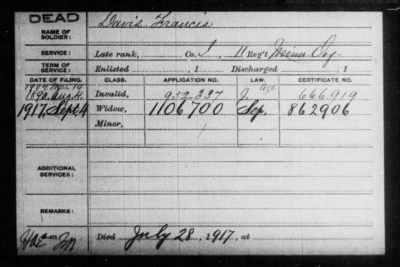 DEAD
NAME OF SOLDIER: Davis Francis
SERVICE: Late rank, Co. I, 11 Reg't
TERM OF SERVICE: Enlisted , 1 Discharged , 1
DATE OF FILING. CLASS. APPLICATION NO. LAW. CERTIFICATE NO.
1890 Aug. Invalid, 952.337 J. 666.919
1917, Sept. 4 Widow, 1106700 Sep. 862906
Minor,
ADDITIONAL SERVICES:
REMARKS:
Died July 28, 1917, at